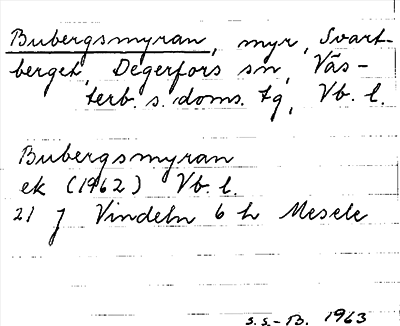 Bubergsmyran, myr, Svart-
berget, Degerfors sn, Väs-
terb. s. doms. tg, Vb. l.
Bubergsmyran
ek (1962) Vb. l.
21 J Vindeln 6 h Mesele
S.S.-B. 1963